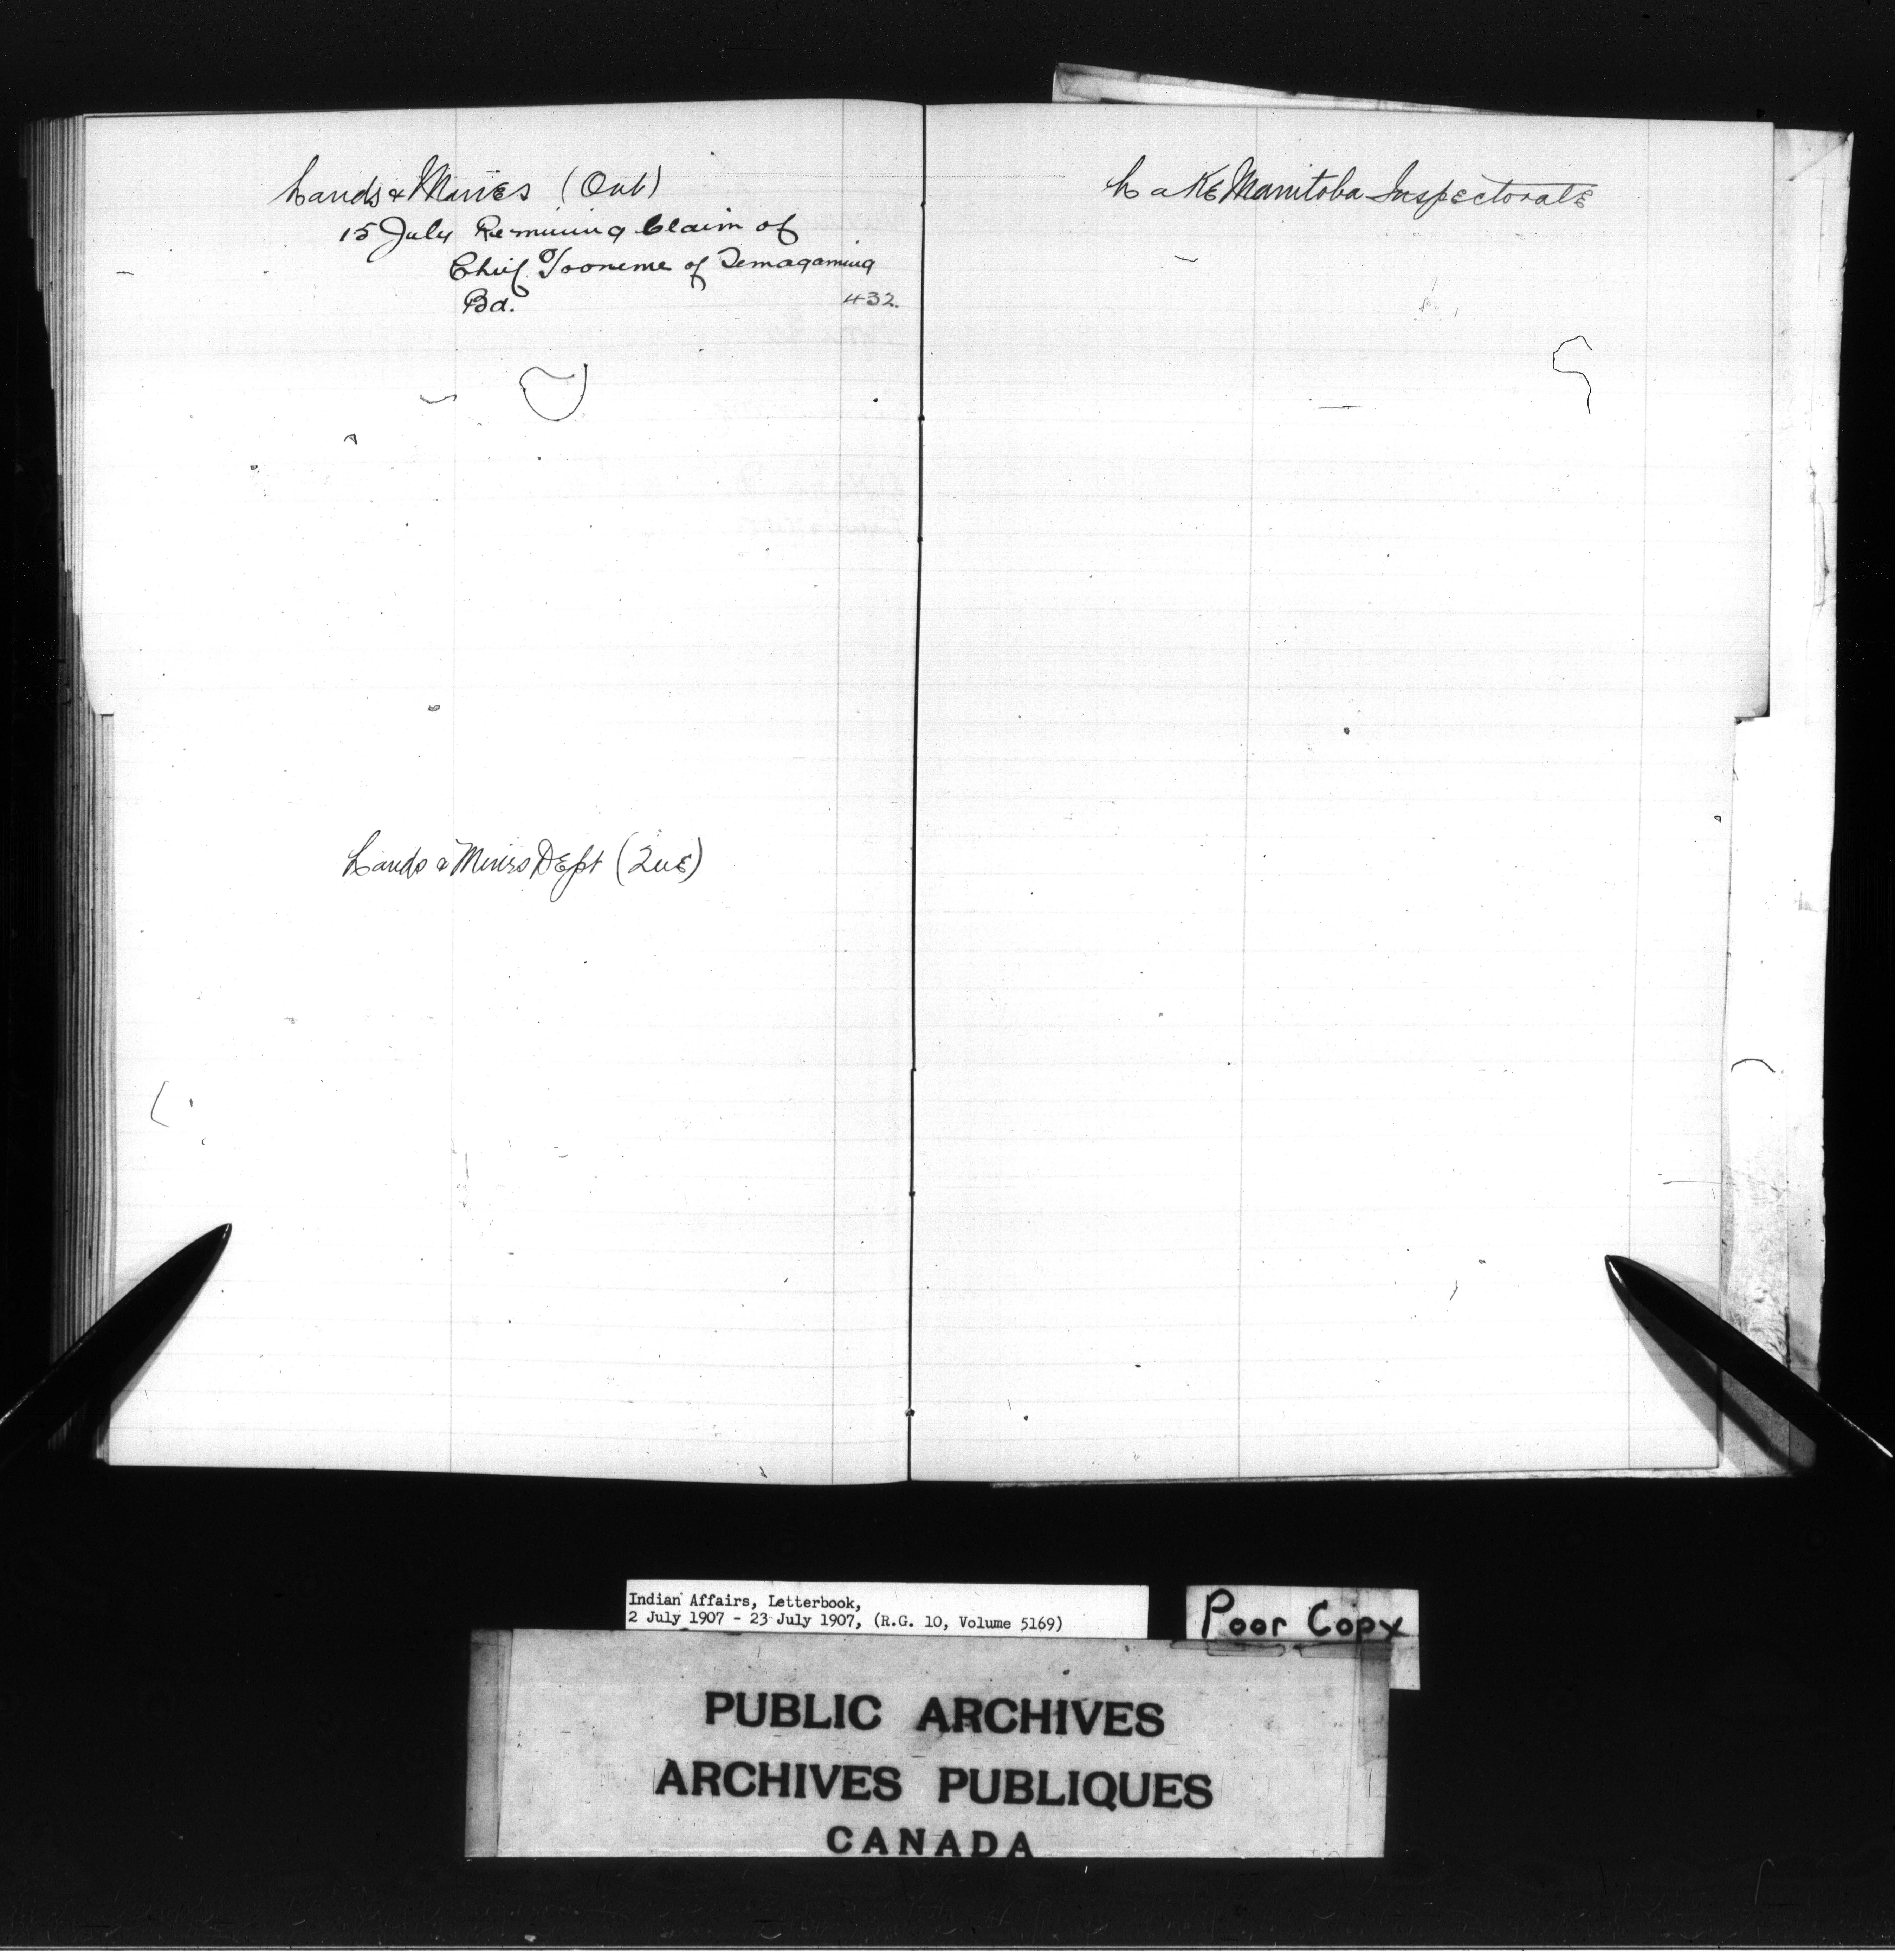 Lands & Mines (Ont)
15 July Re mining Claim of
Chief Tooneme of Temagaming
Bd. 432.
Lands & Mines Dept (Que)
Lake Manitoba Inspectorate
Indian Affairs, Letterbook,
2 July 1907 - 23 July 1907, (R.G. 10, Volume 5169)
Poor Copy
PUBLIC ARCHIVES
ARCHIVES PUBLIQUES
CANADA